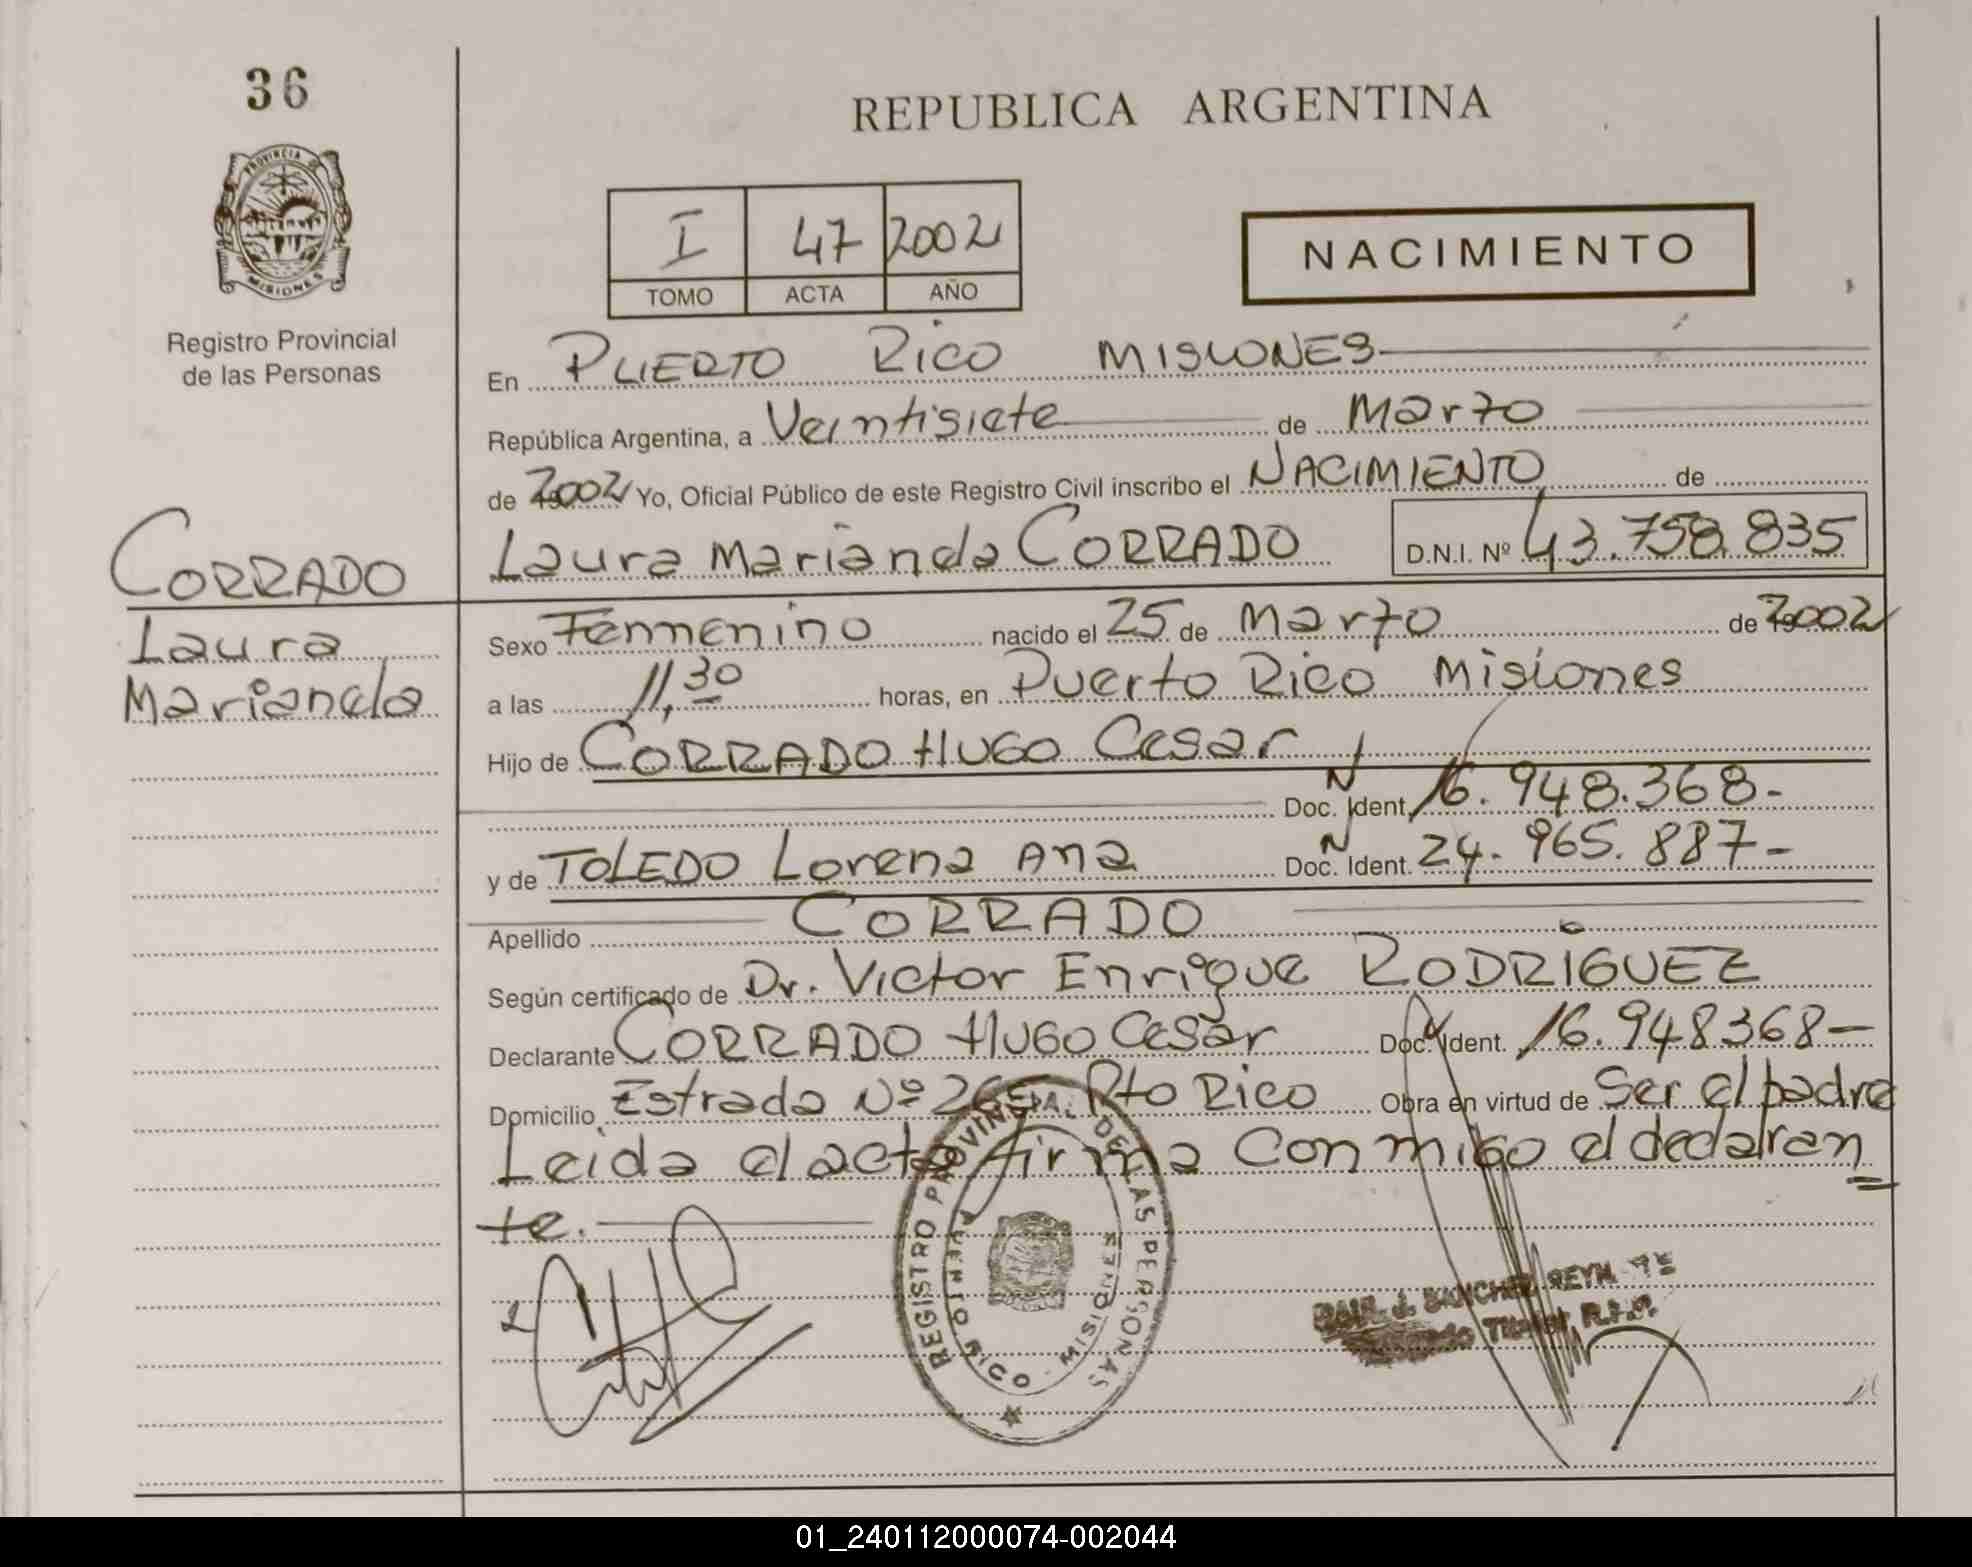 36
REPUBLICA ARGENTINA
PROVINCIA DE MISIONES
Registro Provincial
de las Personas
I 47 2002
TOMO ACTA AÑO
NACIMIENTO
En PUERTO RICO MISIONES
República Argentina, a Veintisiete de Marzo
de 2002 Yo, Oficial Público de este Registro Civil inscribo el NACIMIENTO de
Laura Marianela CORRADO D.N.I. Nº 43.758.835
CORRADO
Laura
Marianela
Sexo Femenino nacido el 25 de Marzo de 2002
a las 11,30 horas, en Puerto Rico Misiones
Hijo de CORRADO HUGO Cesar
Doc. Ident. 16.948.368-
y de TOLEDO Lorena Ana Doc. Ident. 24.965.887-
Apellido CORRADO
Según certificado de Dr. Victor Enrique RODRIGUEZ
Declarante CORRADO HUGO Cesar Doc. Ident. 16.948368-
Domicilio Estrada Nº 265 Pto Rico Obra en virtud de Ser el padre
Leida el acta firma conmigo el declaran
te.
REGISTRO PROVINCIAL DE LAS PERSONAS
PUERTO RICO - MISIONES
J. SANCHEZ
Titular R.P.P.
01_240112000074-002044